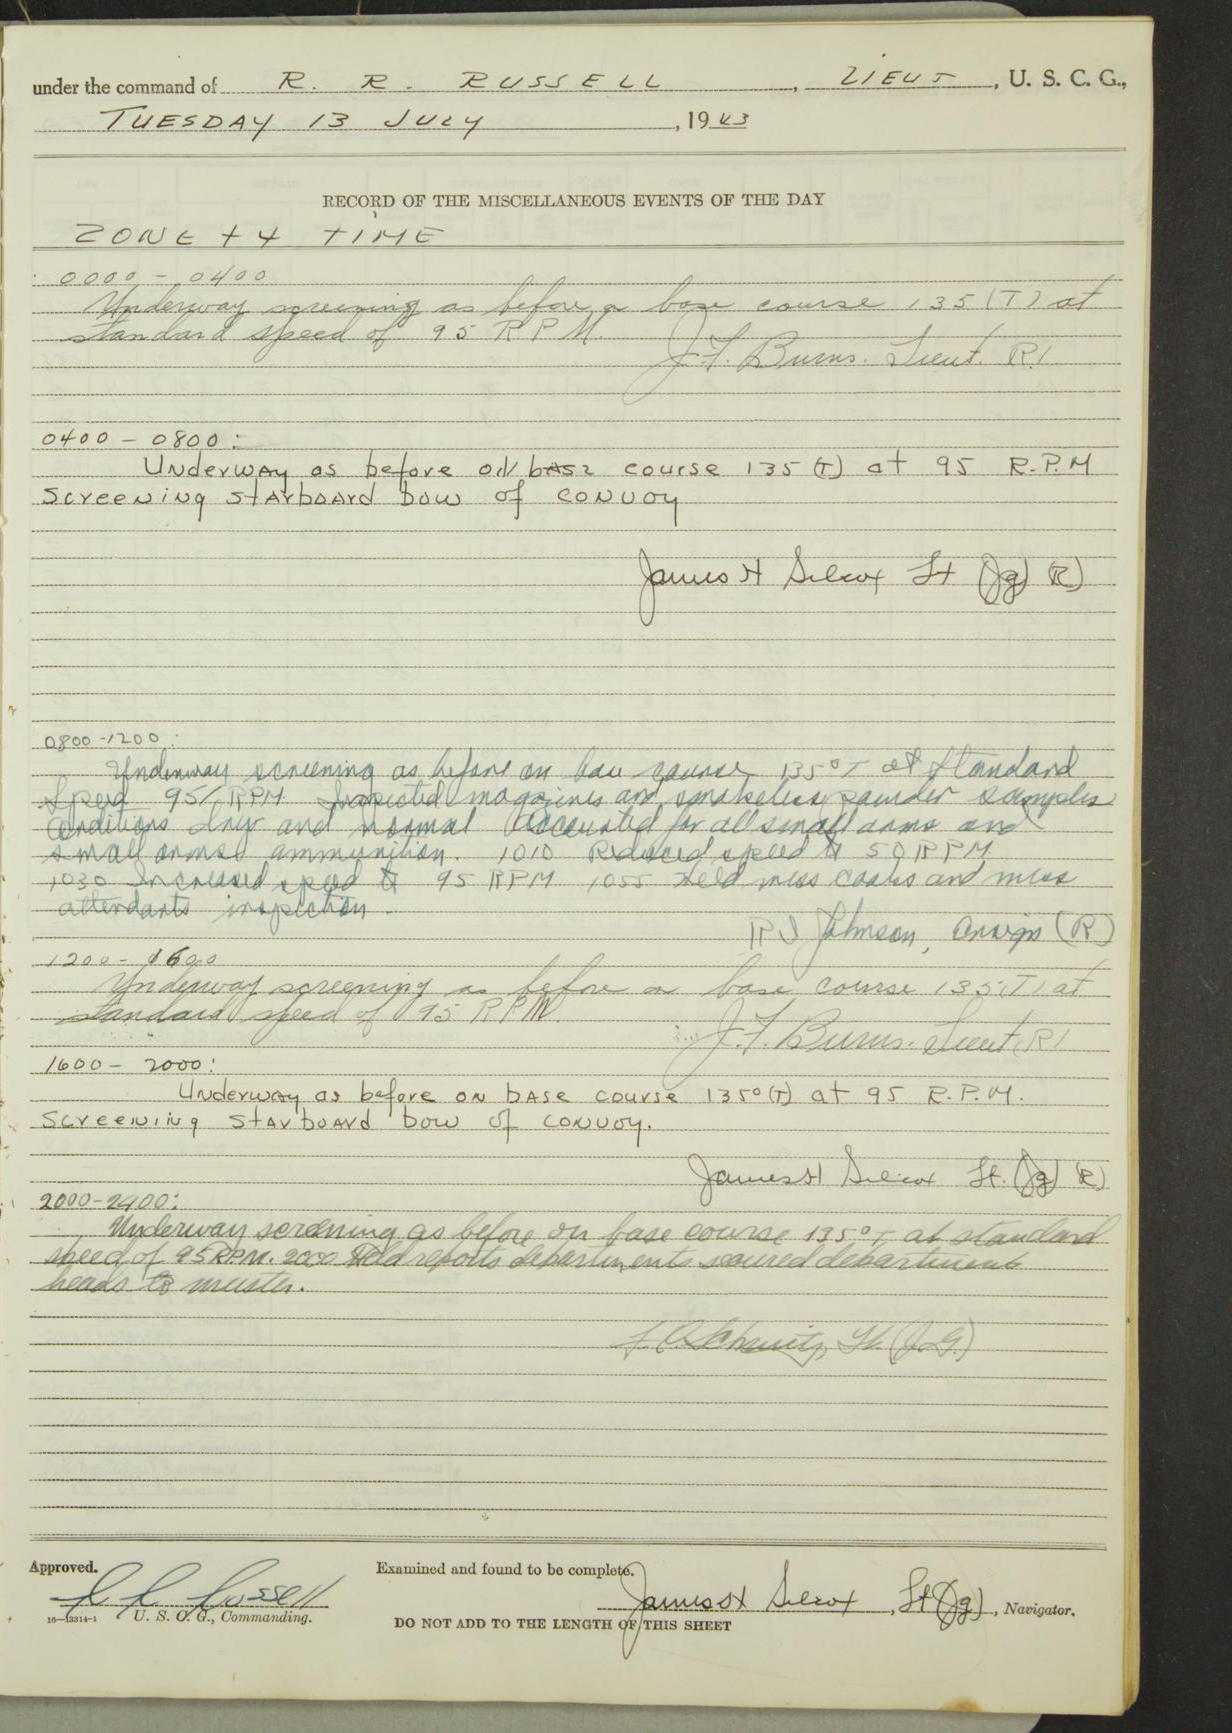 under the command of R. R. RUSSELL, LIEUT, U. S. C. G.,
TUESDAY 13 JULY, 1943
RECORD OF THE MISCELLANEOUS EVENTS OF THE DAY
ZONE +4 TIME
0000 - 0400
Underway screening as before on base course 135 (T) at
standard speed of 95 RPM.
J.F. Burns. Lieut. (R)
0400 - 0800:
Underway as before on base course 135 (T) at 95 R.P.M
screening starboard bow of convoy
James H Silcox Lt (Jg) (R)
0800-1200:
Underway screening as before on base course 135° T at standard
speed 95 RPM Inspected magazines and smokeless powder samples
conditions dry and normal Accounted for all small arms and
small arms ammunition. 1010 Reduced speed to 50 RPM
1030 Increased speed to 95 RPM 1055 Held mess cooks and mess
attendants inspection.
R J Johnson, Ensign (R)
1200-1600
Underway screening as before on base course 135 (T) at
standard speed of 95 RPM.
J.F. Burns. Lieut (R)
1600 - 2000:
Underway as before on base course 135° (T) at 95 R.P.M.
screening starboard bow of convoy.
James H Silcox Lt. (Jg) (R)
2000-2400:
Underway screening as before on base course 135° T at standard
speed of 95 R.P.M. 2000 Held reports departments secured department
heads to muster.
Lt. (J.G.)
Approved.
R R Russell
16-13314-1 U. S. C. G., Commanding.
Examined and found to be complete.
James H Silcox, Lt (Jg), Navigator.
DO NOT ADD TO THE LENGTH OF THIS SHEET